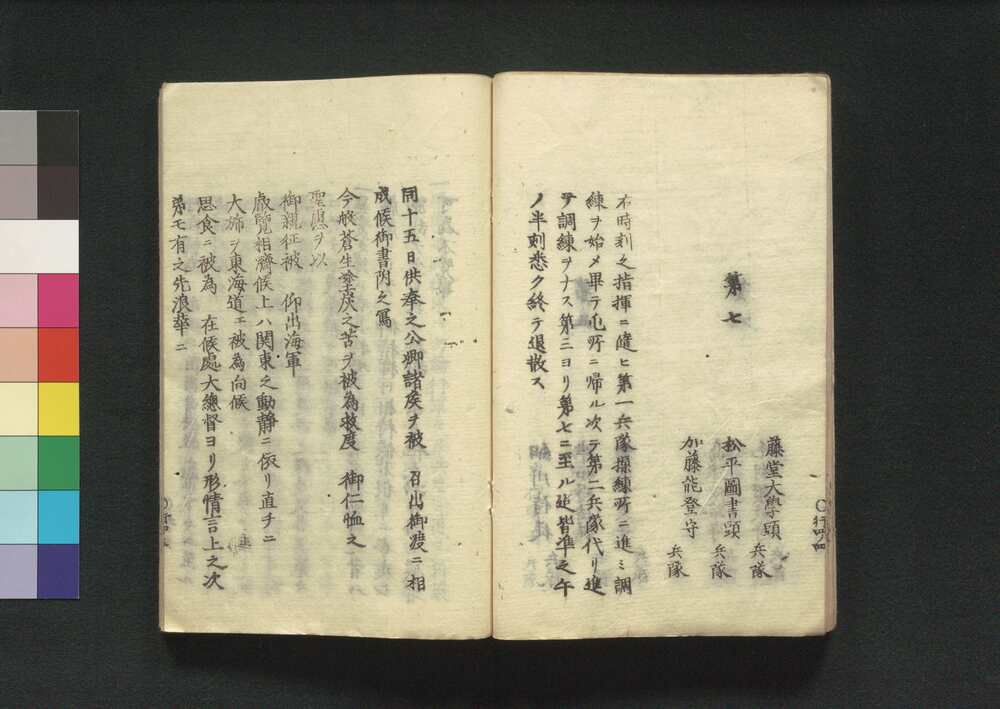 第七
藤堂大學頭　兵隊
松平圖書頭　兵隊
加藤能登守　兵隊
右時刻之指揮ニ隨ヒ第一兵隊操練所ニ進ミ調
練ヲ始メ畢テ屯所ニ帰ル次テ第二兵隊代リ進
ヲ調練ヲナス第三ヨリ第七ニ至ル迄皆準之午
ノ半刻悉ク終テ退散ス
同十五日供奉之公卿諸矦ヲ被　召出御渡ニ相
成候御書附之寫
今般蒼生塗炭之苦ヲ被為救度　御仁恤之
聖慮ヲ以
御親征被　仰出海軍
叡覧相濟候上ハ関東之動静ニ依リ直チニ
大旆ヲ東海道エ被為向候
思食ニ被為　在候處大總督ヨリ形情言上之次
第モ有之先浪華ニ